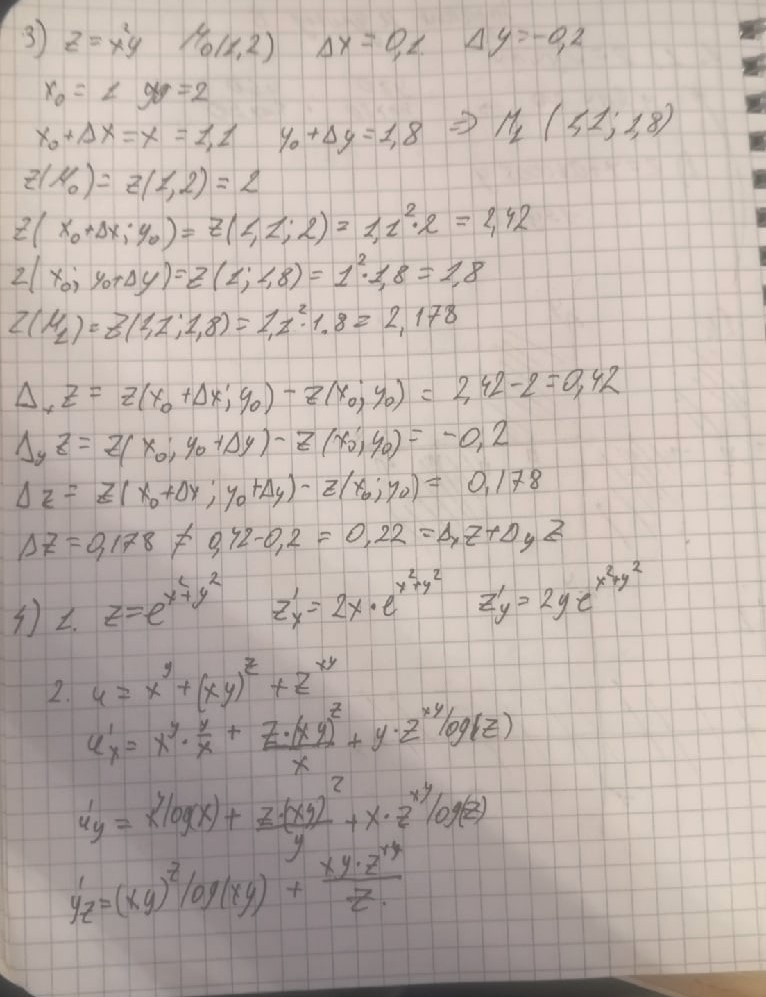 3) z = x²y M₀(1,2) Δx = 0,1 Δy = -0,2
x₀ = 1 y₀ = 2
x₀+Δx = x = 1,1 y₀+Δy = 1,8 ⇒ M₁ (1,1; 1,8)
z(M₀) = z(1,2) = 2
z(x₀+Δx; y₀) = z(1,1; 2) = 1,1²·2 = 2,42
z(x₀; y₀+Δy) = z(1; 1,8) = 1²·1,8 = 1,8
z(M₁) = z(1,1; 1,8) = 1,1²·1.8 = 2,178
Δₓz = z(x₀+Δx; y₀) - z(x₀; y₀) = 2,42-2 = 0,42
Δ_y z = z(x₀; y₀+Δy) - z(x₀; y₀) = -0,2
Δz = z(x₀+Δx; y₀+Δy) - z(x₀; y₀) = 0,178
Δz = 0,178 ≠ 0,42-0,2 = 0,22 = Δₓz+Δ_y z
4) 1. z = e^(x²+y²) z'ₓ = 2x·e^(x²+y²) z'_y = 2y e^(x²+y²)
2. u = x^y + (xy)^z + z^(xy)
u'ₓ = x^y · y/x + z·(xy)^z/x + y·z^(xy) log(z)
u'_y = x^y log(x) + z·(xy)^z/y + x·z^(xy) log(z)
y'_z = (xy)^z log(xy) + xy·z^(xy)/z.